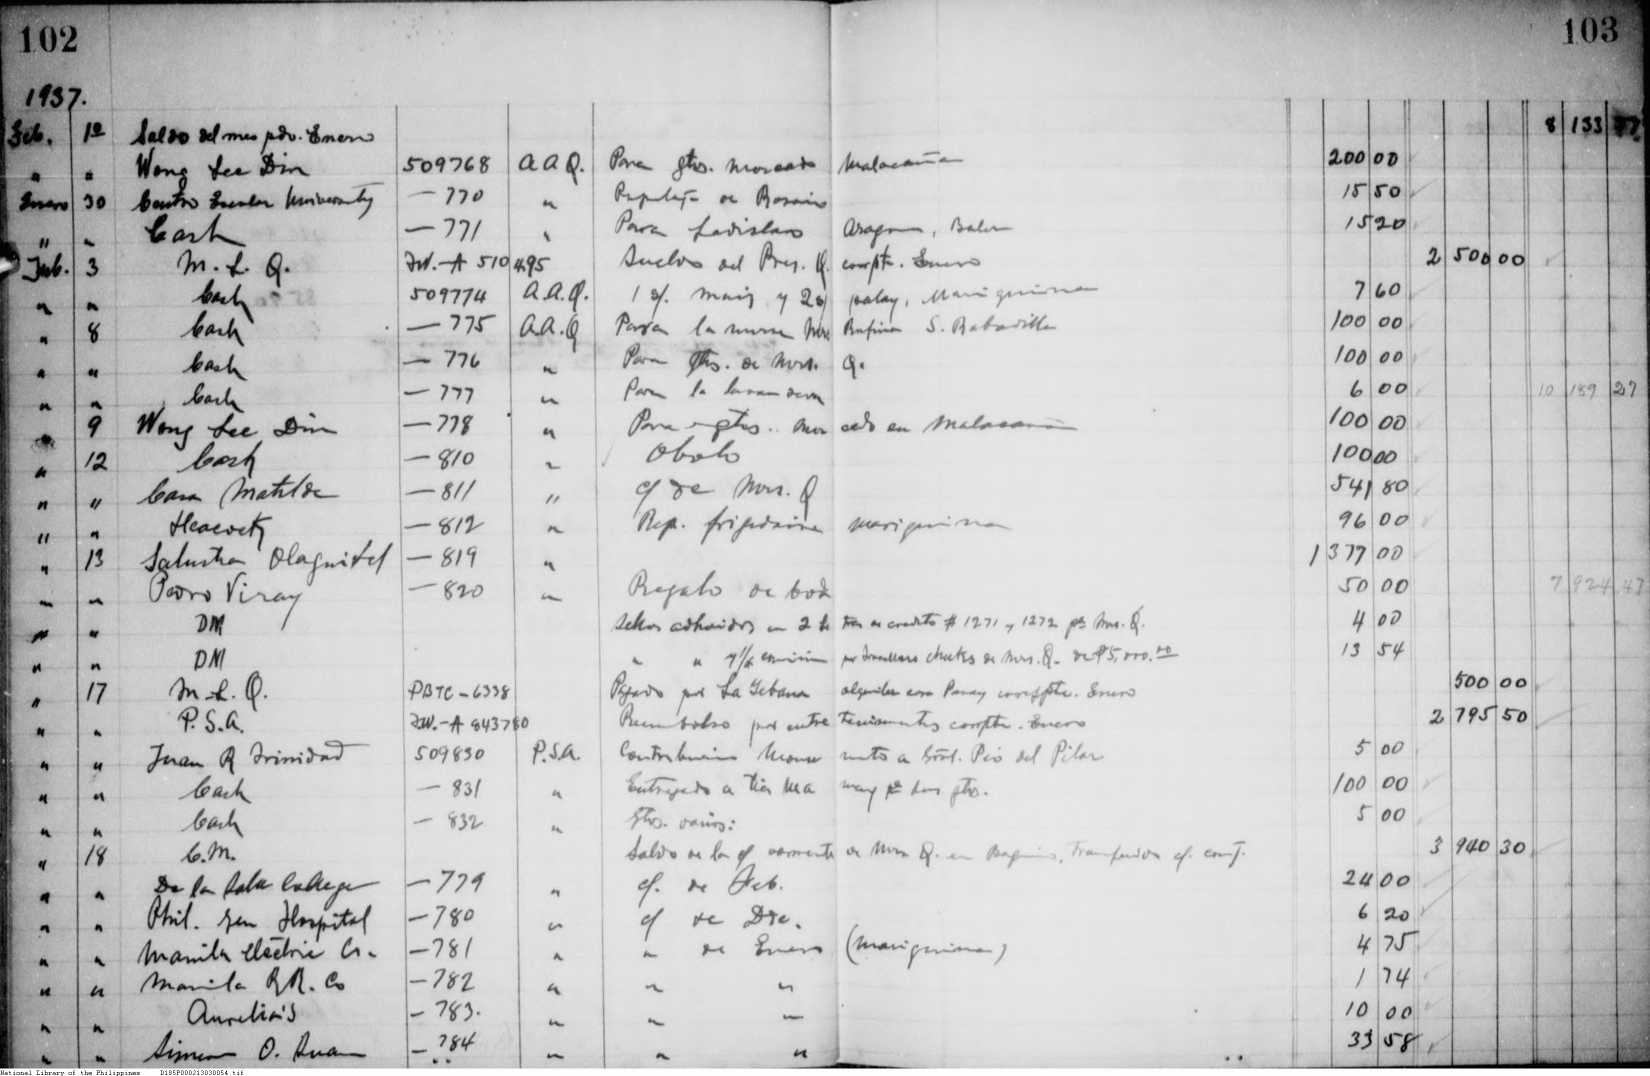 102
103
1937.
Feb. 1º Saldo del mes pdo. Enero 8 133 77
" " Wong Lee Din 509768 A A Q. Para gtos. mercado Malacañan 200 00
Enero 30 Centro Escolar University — 770 " de Rosario 15 50
" " Cash — 771 " Para Ladislaw Aragon, Baler 15 20
Feb. 3 M. L. Q. Tw.-A 510495 Sueldo del Pres. Q. corrpte. Enero 2 500 00
" " Cash 509774 A.A.Q. maiz y palay, Mariquina 7 60
" 8 Cash — 775 A.A.Q Para la nurse Mrs Rufina S. Rabadilla 100 00
" " Cash — 776 " Para gtos. de Mrs. Q. 100 00
" " Cash — 777 " Para la lavandera 6 00 10 189 27
" 9 Wong Lee Din — 778 " Para gtos. mercado en Malacañan 100 00
" 12 Cash — 810 " Obolo 100 00
" " Casa Matilde — 811 " c/ de Mrs. Q 541 80
" " Heacock — 812 " Rep. frigidaire mariquina 96 00
" 13 Salustia Olaguivel — 819 " 1 377 00
" " Pedro Viray — 820 " Regalo de boda 50 00 7 924 47
" " DM Sellos adheridos en 2 letras de credito # 1271 y 1272 pª Mrs. Q. 4 00
" " DM " " por travellers checks de Mrs. Q. de ₱5,000.00 13 54
" 17 M. L. Q. PBTC - 6338 Pagado por La Yebana alquiler casa Panay corrppte. Enero 500 00
" " P.S.A. Tw.-A 843780 Reembolso por entretenimientos corrpte. Enero 2 795 50
" " Juan R Trinidad 509830 P.S.A. Contribucion Monumento a Gral. Pio del Pilar 5 00
" " Cash — 831 " Entregado a Tia Mamay pª sus gtos. 100 00
" " Cash — 832 " gtos. varios: 5 00
" 18 C.M. Saldo de la c/ corriente de Mrs Q. en Baguio, Transferido c/. conj. 3 940 30
" " De la Salle College — 779 " c/. de Feb. 24 00
" " Phil. Gen Hospital — 780 " c/ de Dic. 6 20
" " Manila Electric Co. — 781 " " de Enero (Mariquina) 4 75
" " Manila RR. Co — 782 " " " 1 74
" " Aurelia's — 783. " " " 10 00
" " Simeon O. — 784 " " " 33 58
National Library of the Philippines D185P000213030054.tif